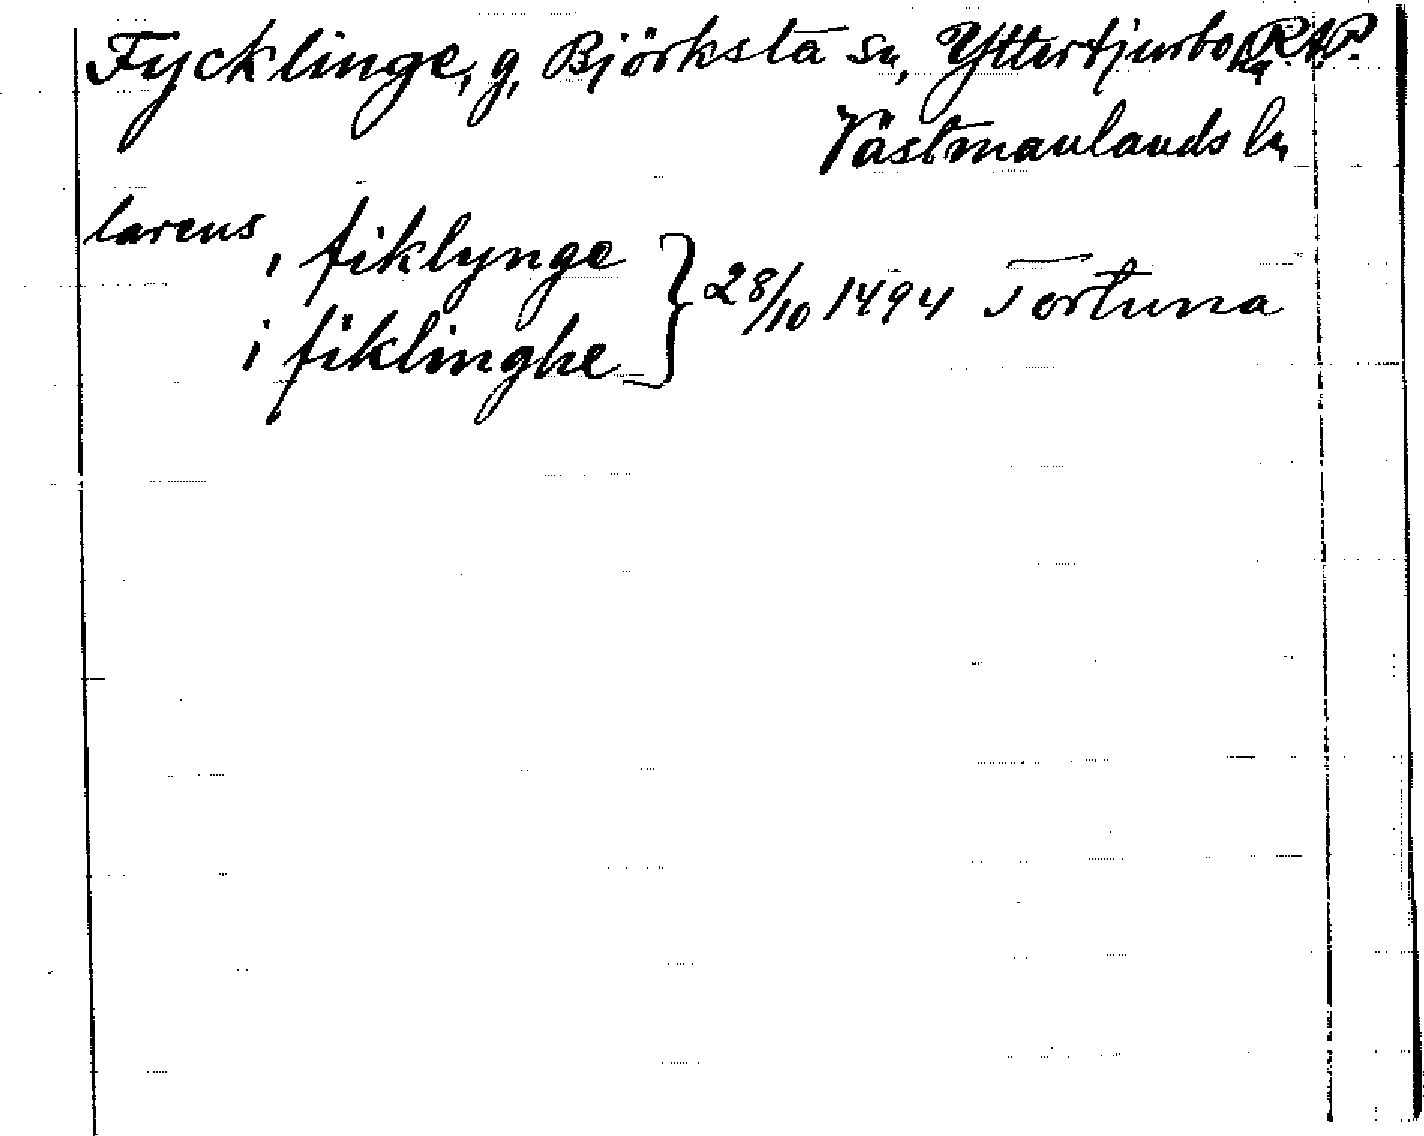 Fycklinge, g, Björksta Sn, Yttertjurbo RAP.
Västmanlands ln
larens
i fiklynge
i fiklinghe } 28/10 1494 Tortuna